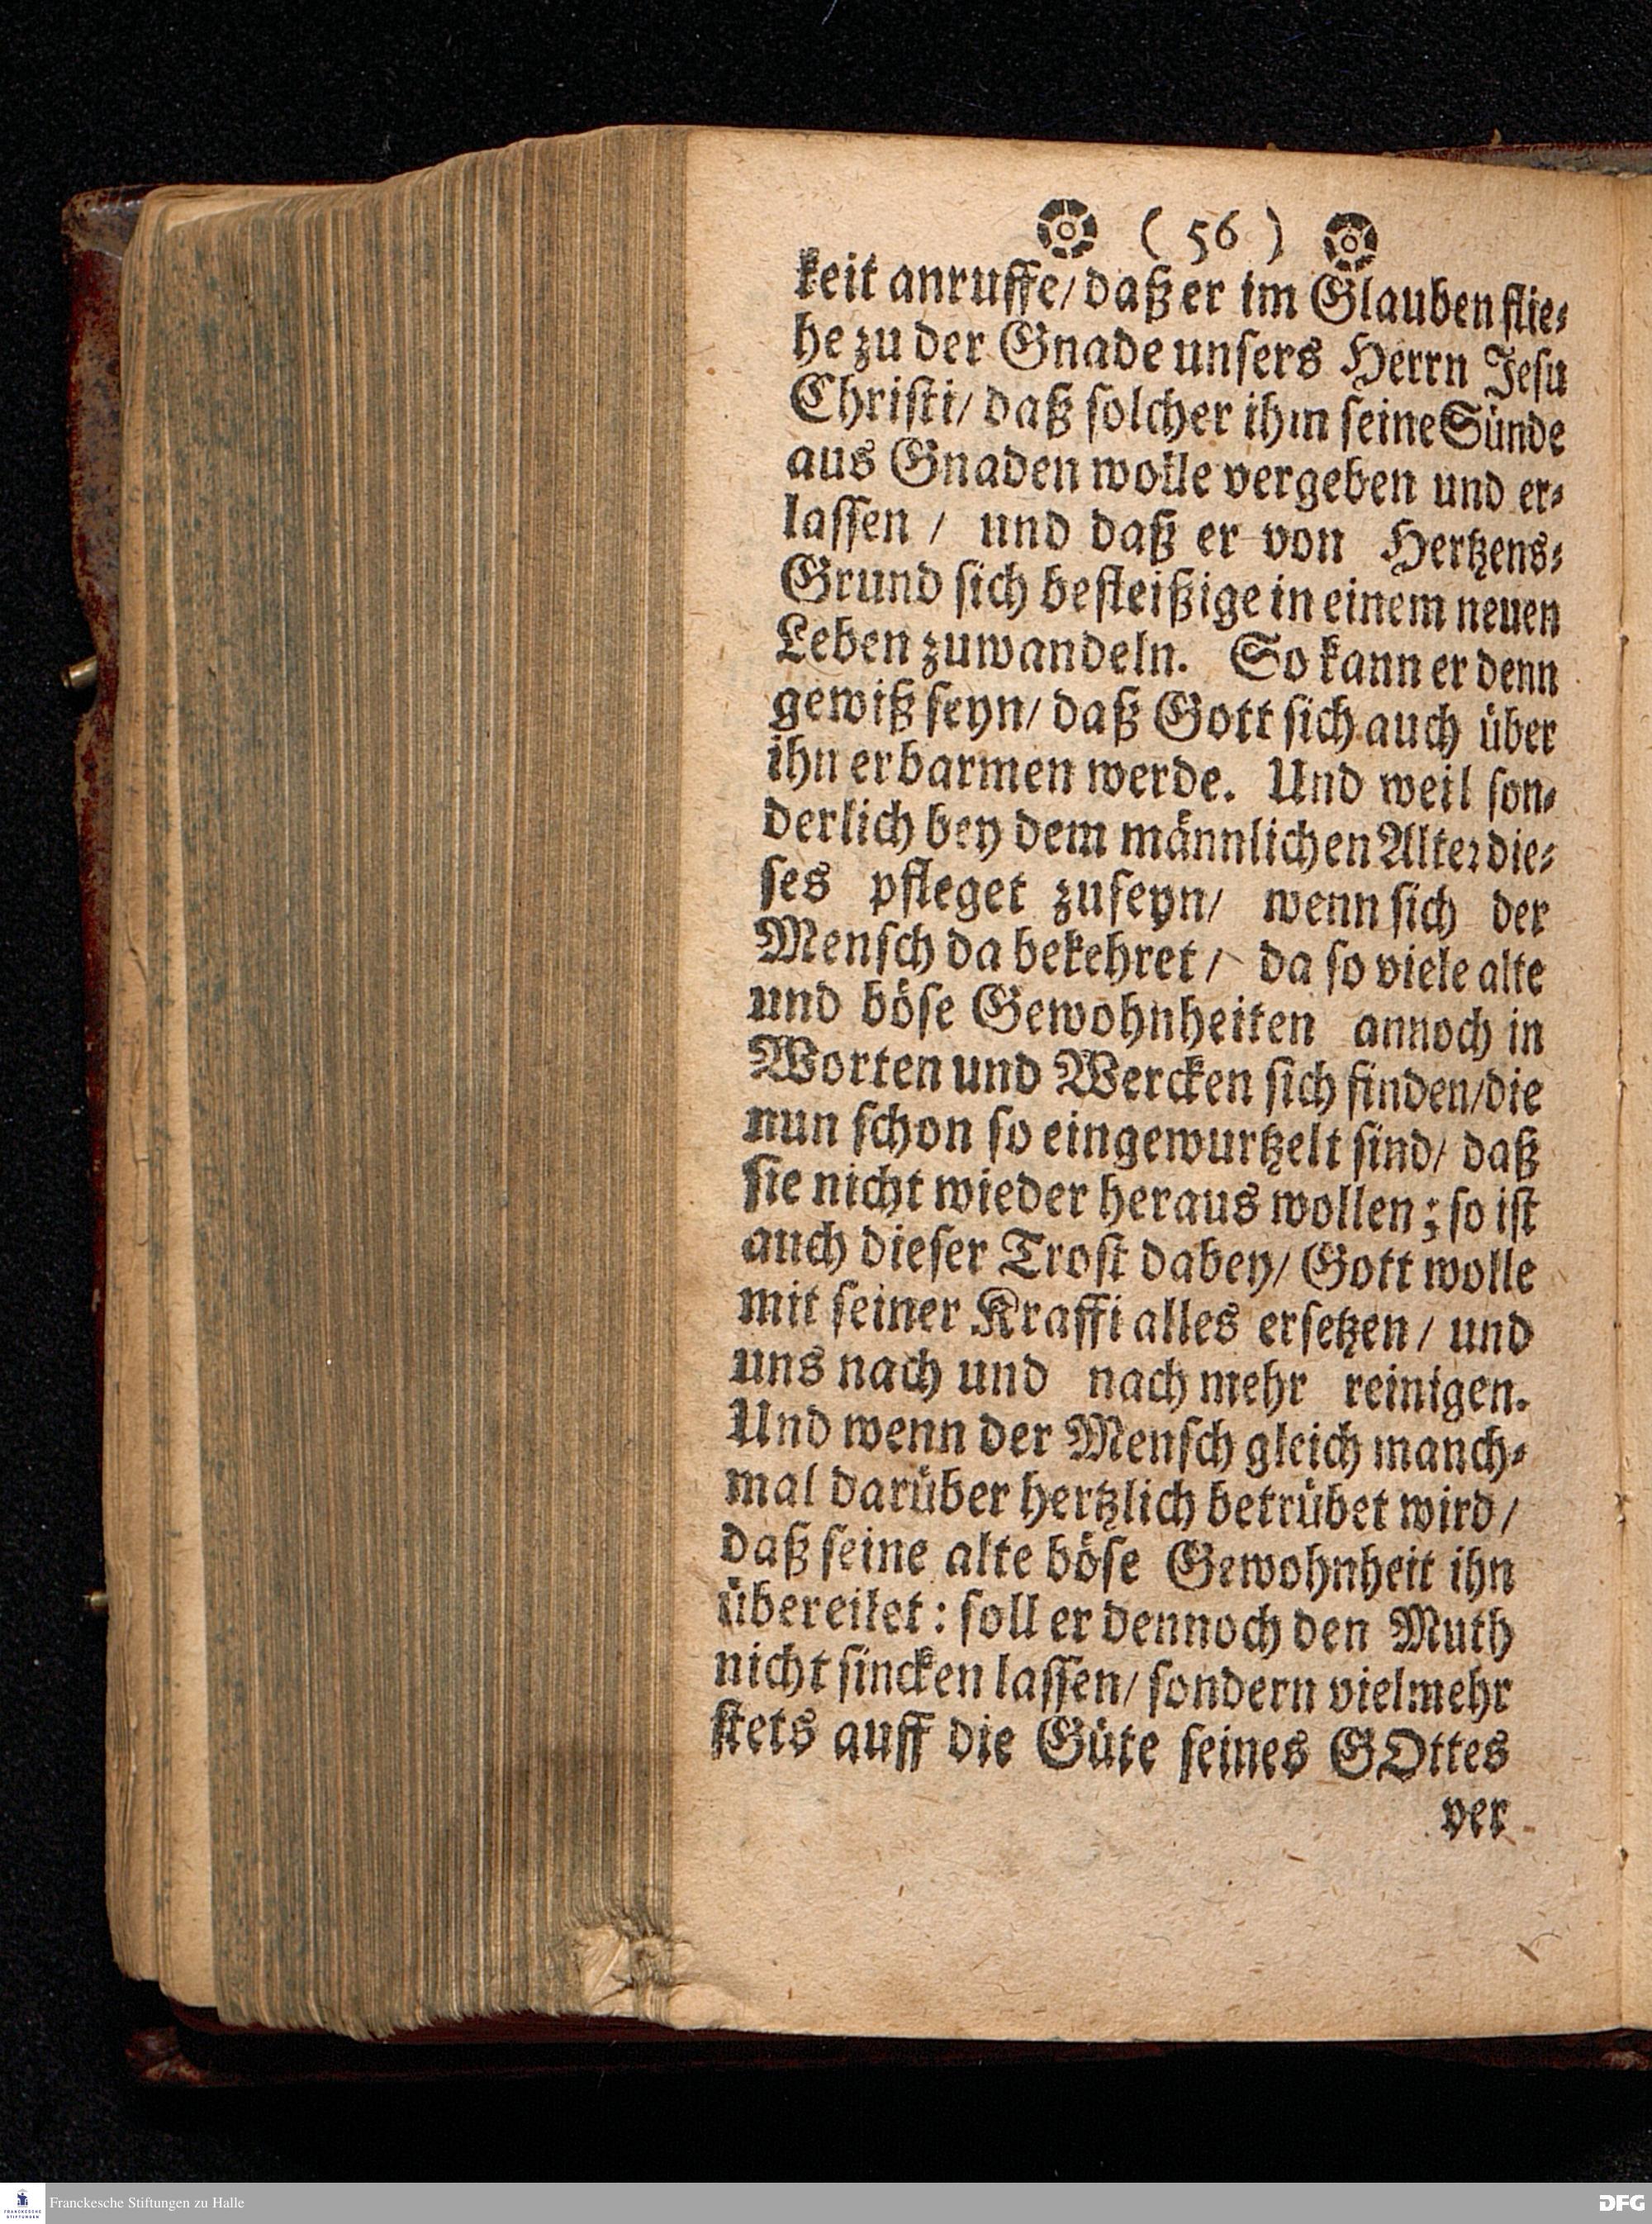 ( 56 )
keit anruffe/ daß er im Glauben flie-
he zu der Gnade unsers Herrn Jesu
Christi/ daß solcher ihm seine Sünde
aus Gnaden wolle vergeben und er-
lassen / und daß er von Hertzens-
Grund sich befleißige in einem neuen
Leben zuwandeln. So kann er denn
gewiß seyn/ daß Gott sich auch über
ihn erbarmen werde. Und weil son-
derlich bey dem männlichen Alter die-
ses pfleget zuseyn/ wenn sich der
Mensch da bekehret / da so viele alte
und böse Gewohnheiten annoch in
Worten und Wercken sich finden/die
nun schon so eingewurtzelt sind/ daß
sie nicht wieder heraus wollen; so ist
auch dieser Trost dabey/ Gott wolle
mit seiner Krafft alles ersetzen / und
uns nach und nach mehr reinigen.
Und wenn der Mensch gleich manch-
mal darüber hertzlich betrübet wird /
daß seine alte böse Gewohnheit ihn
übereilet: soll er dennoch den Muth
nicht sincken lassen/ sondern vielmehr
stets auff die Güte seines GOttes
ver-
Franckesche Stiftungen zu Halle
DFG